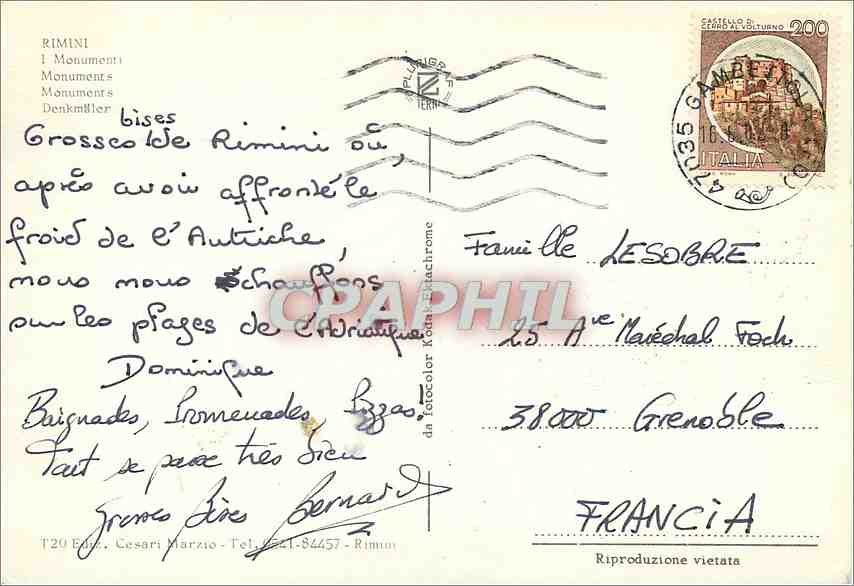 RIMINI
I Monumenti
Monuments
Monuments
Denkmäler
bises
Grosses de Rimini où,
après avoir affronté le
froid de l'Autriche,
nous nous échauffons
sur les plages de l'Adriatique
Dominique
Baignades, Promenades, Pizzas!
Tout se passe très bien
grosses bises Bernard
T20 Ediz. Cesari Marzio - Tel. 0541-84457 - Rimini
da fotocolor Kodak Ektachrome
PLURIGRAF
TERNI
CASTELLO DI
CERRO AL VOLTURNO
200
ITALIA
47035 GAMBETTOLA
Famille LESOBRE
25 Ave Maréchal Foch
38000 Grenoble
FRANCIA
Riproduzione vietata
CPAPHIL